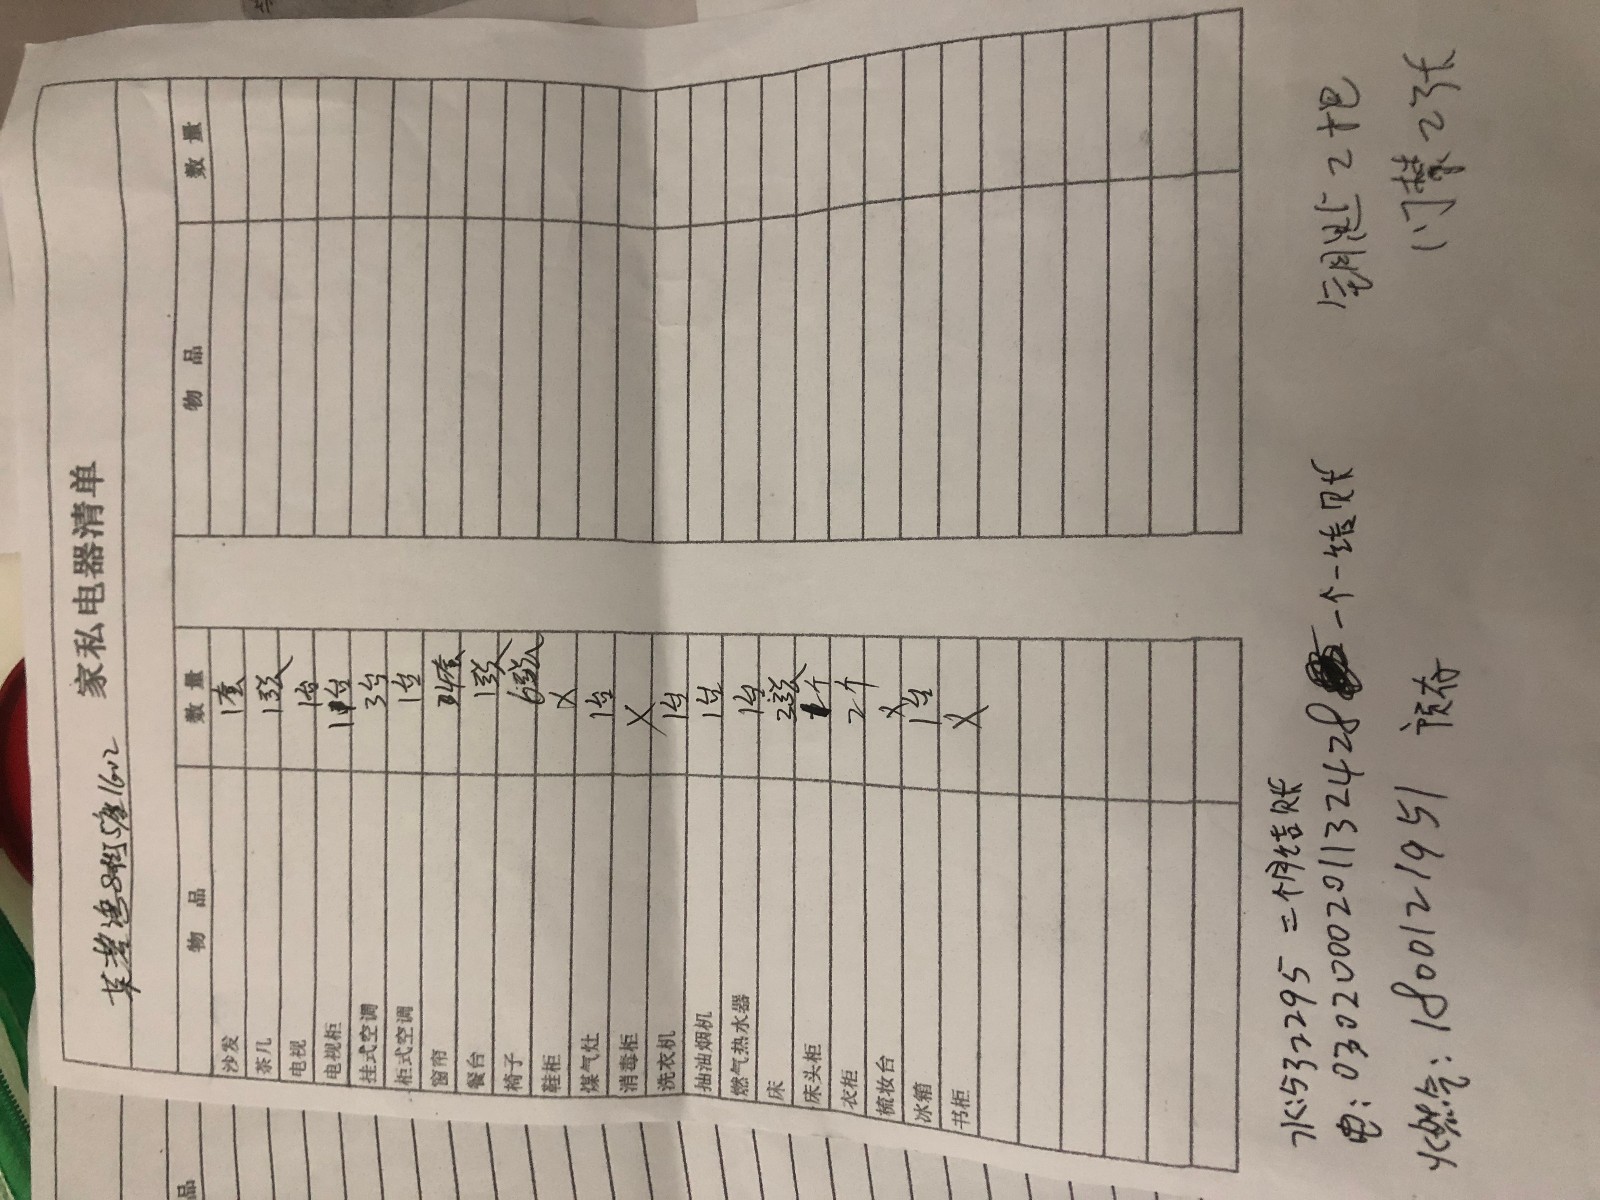 家私电器清单
8街5座1602
物品 数量 物品 数量
沙发 1套
茶几 1张
电视 1台
电视柜 1台
挂式空调 3台
柜式空调 1台
窗帘 4套
餐台 1张
椅子 6张
鞋柜 X
煤气灶 1台
消毒柜 X
洗衣机 1台
抽油烟机 1台
燃气热水器 1台
床 2张
床头柜 1个
衣柜 2个
梳妆台 X
冰箱 1台
书柜 X
水:5322295 二个月结账
电:0302000201132428 一个月结账
钥匙 2把
燃气:1800121951 预存
门禁 2张
品